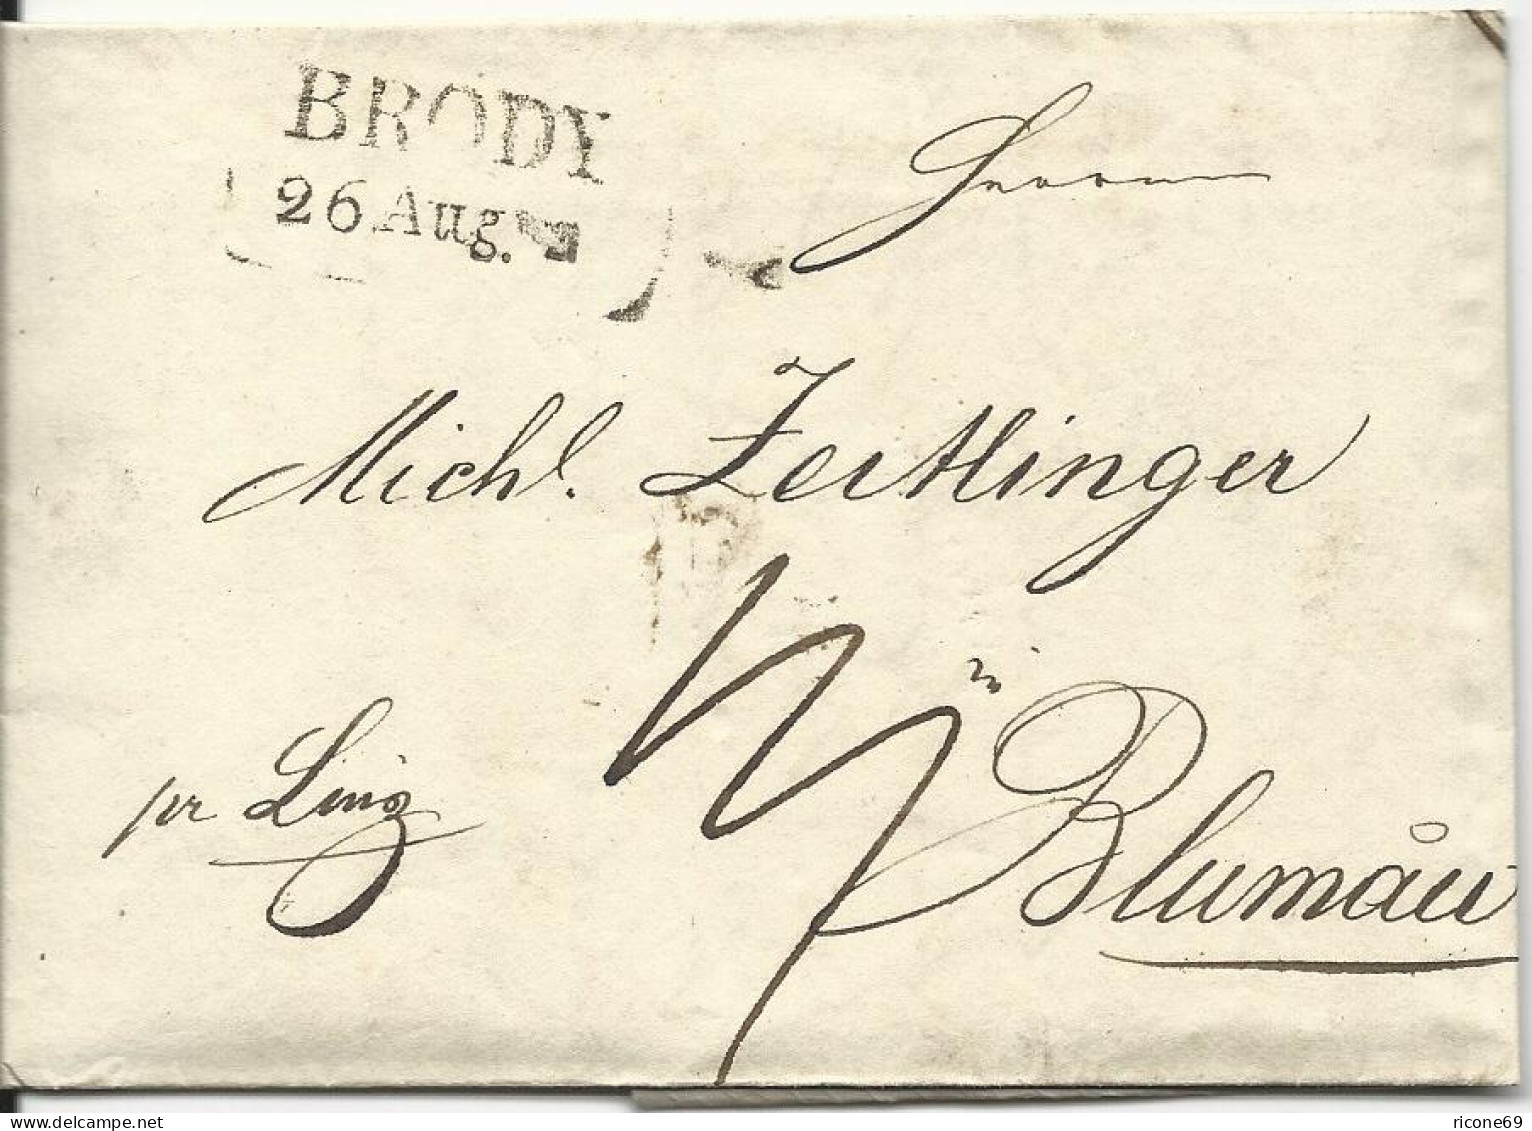 BRODY
26 Aug.
Herrn
Michl. Zeitlinger
in
pr Linz
Blumau
ricone69